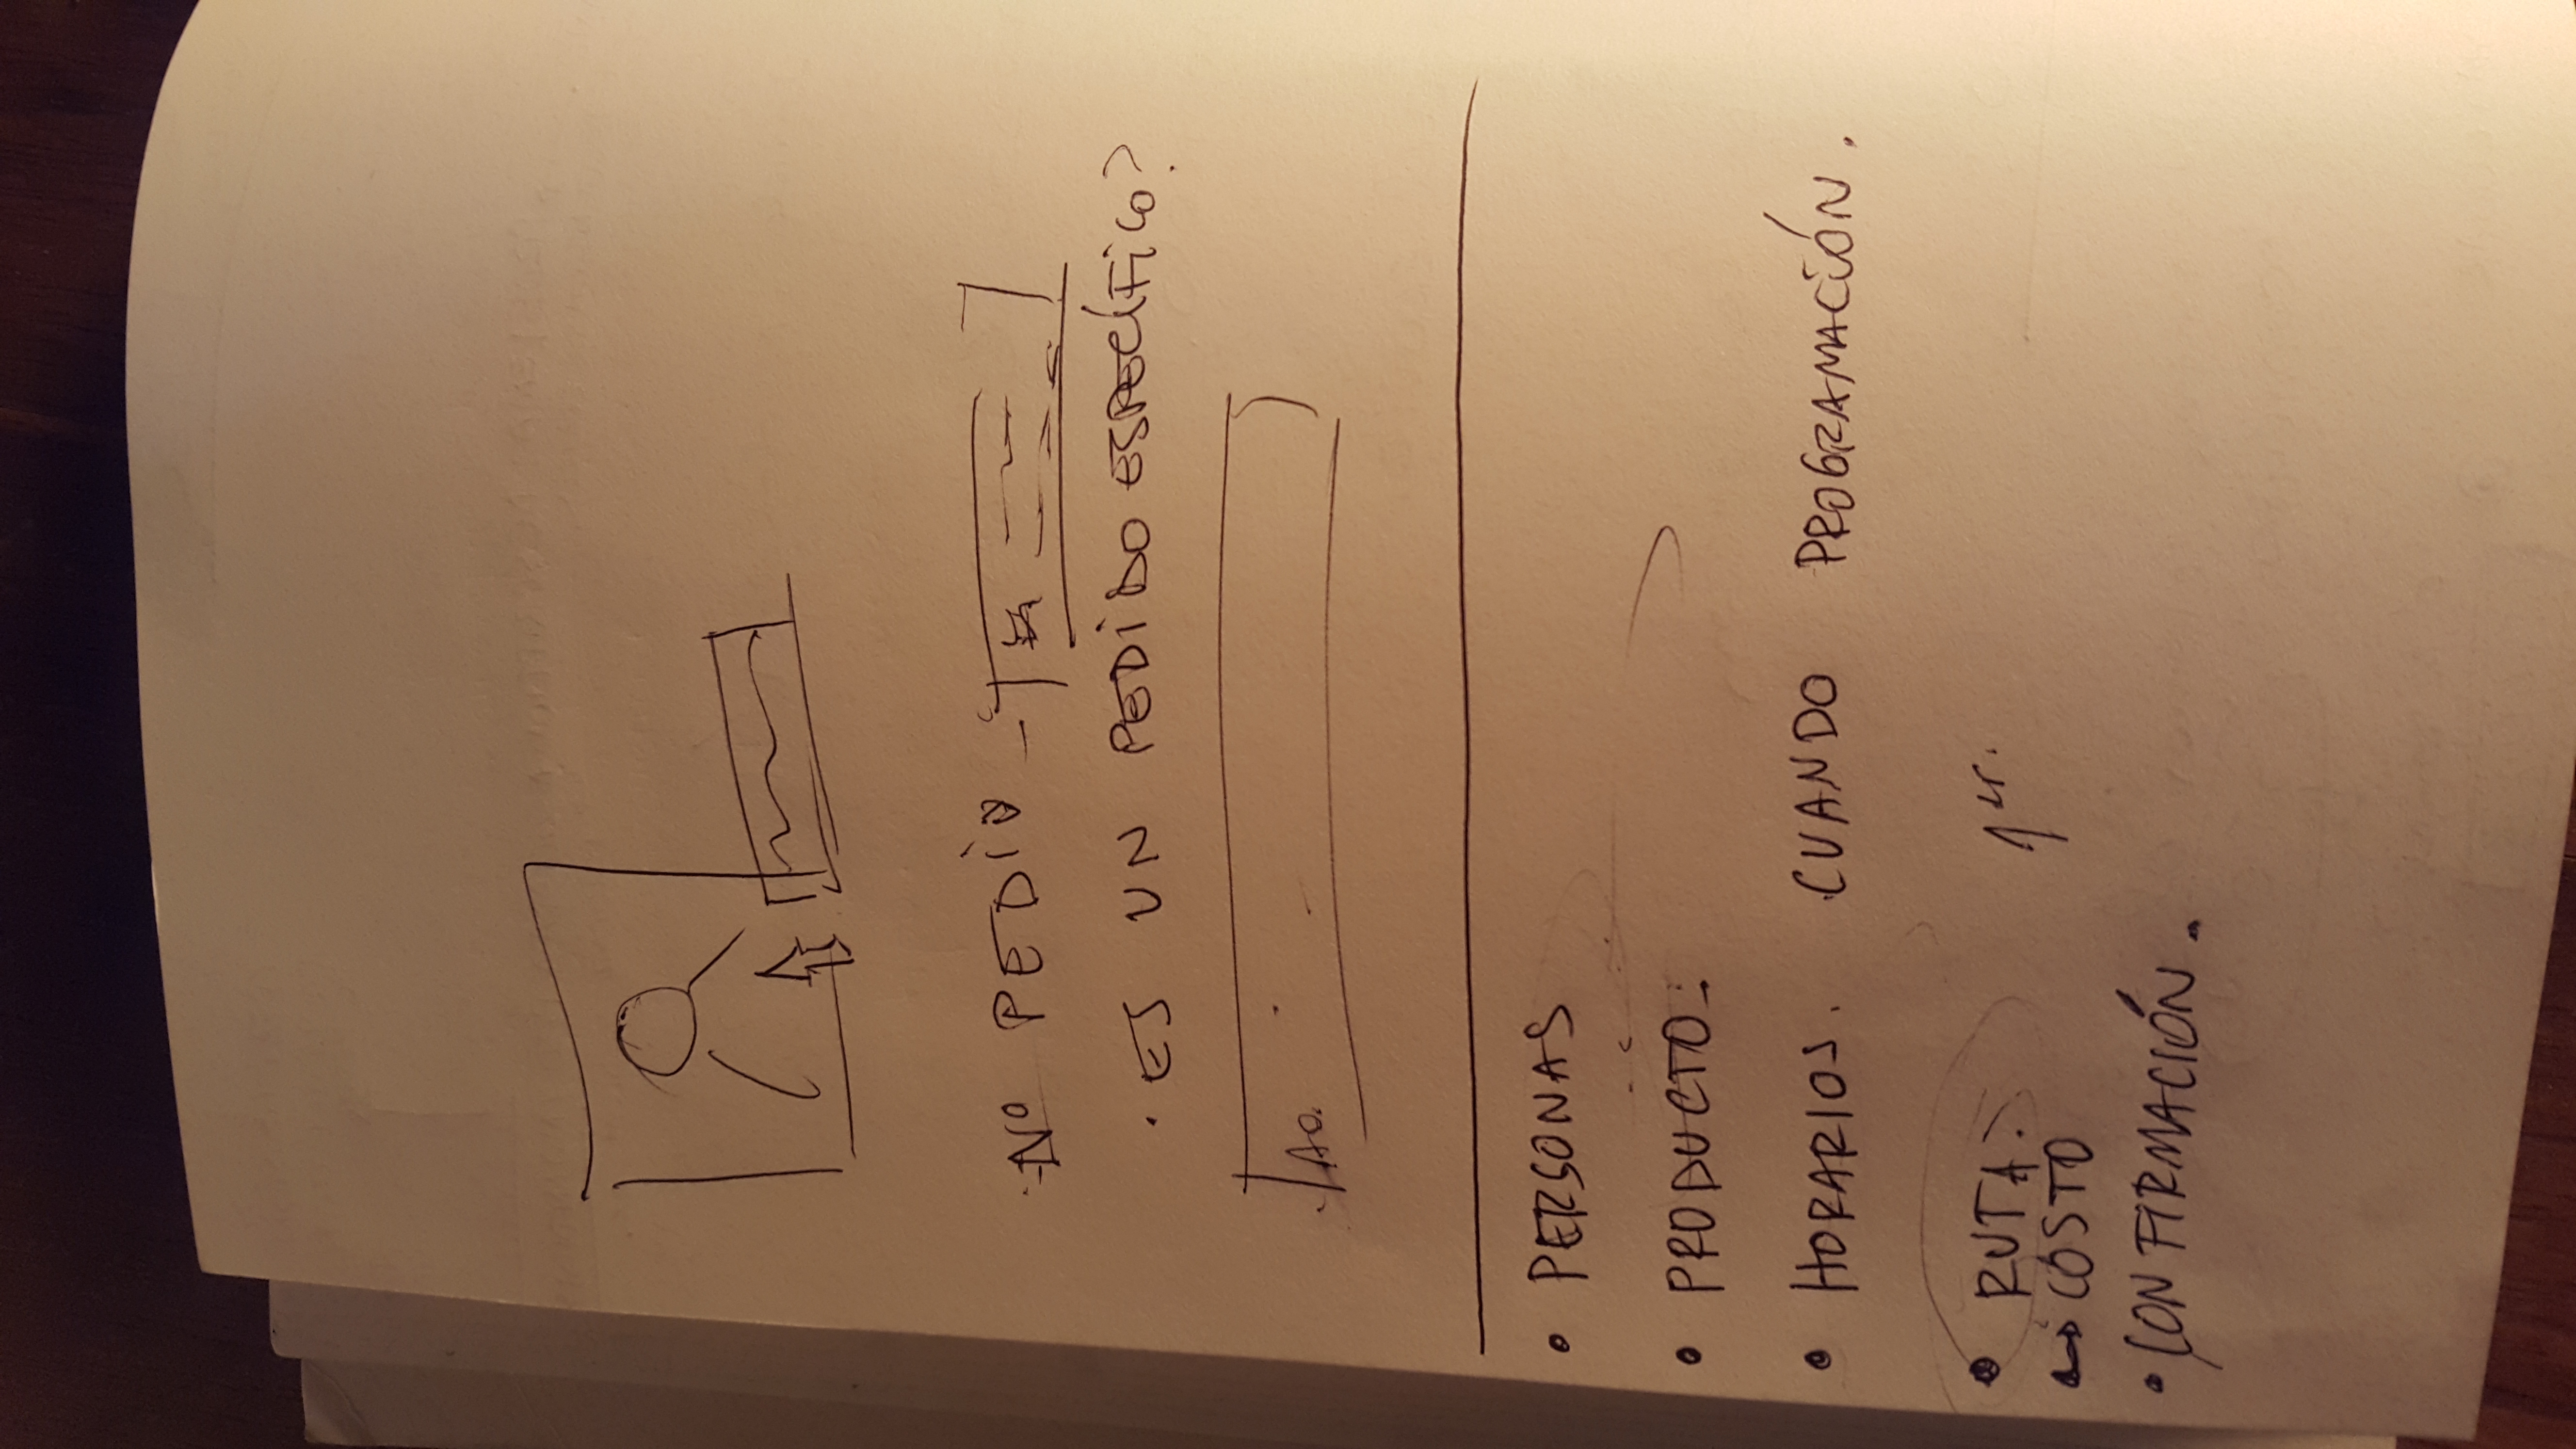 Nº PEDIDO
· ES UN PEDIDO ESPECÍFICO?
• PERSONAS
• PRODUCTO:
• HORARIOS. CUANDO PROGRAMACIÓN.
• RUTA: 1er.
↔ COSTO
• CONFIRMACIÓN.